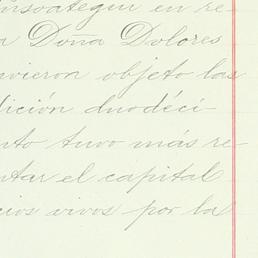 en re-
a Doña Dolores
vieron objeto las
dición duodéci-
nto tuvo más re-
ntar el capital
cios vivos por la